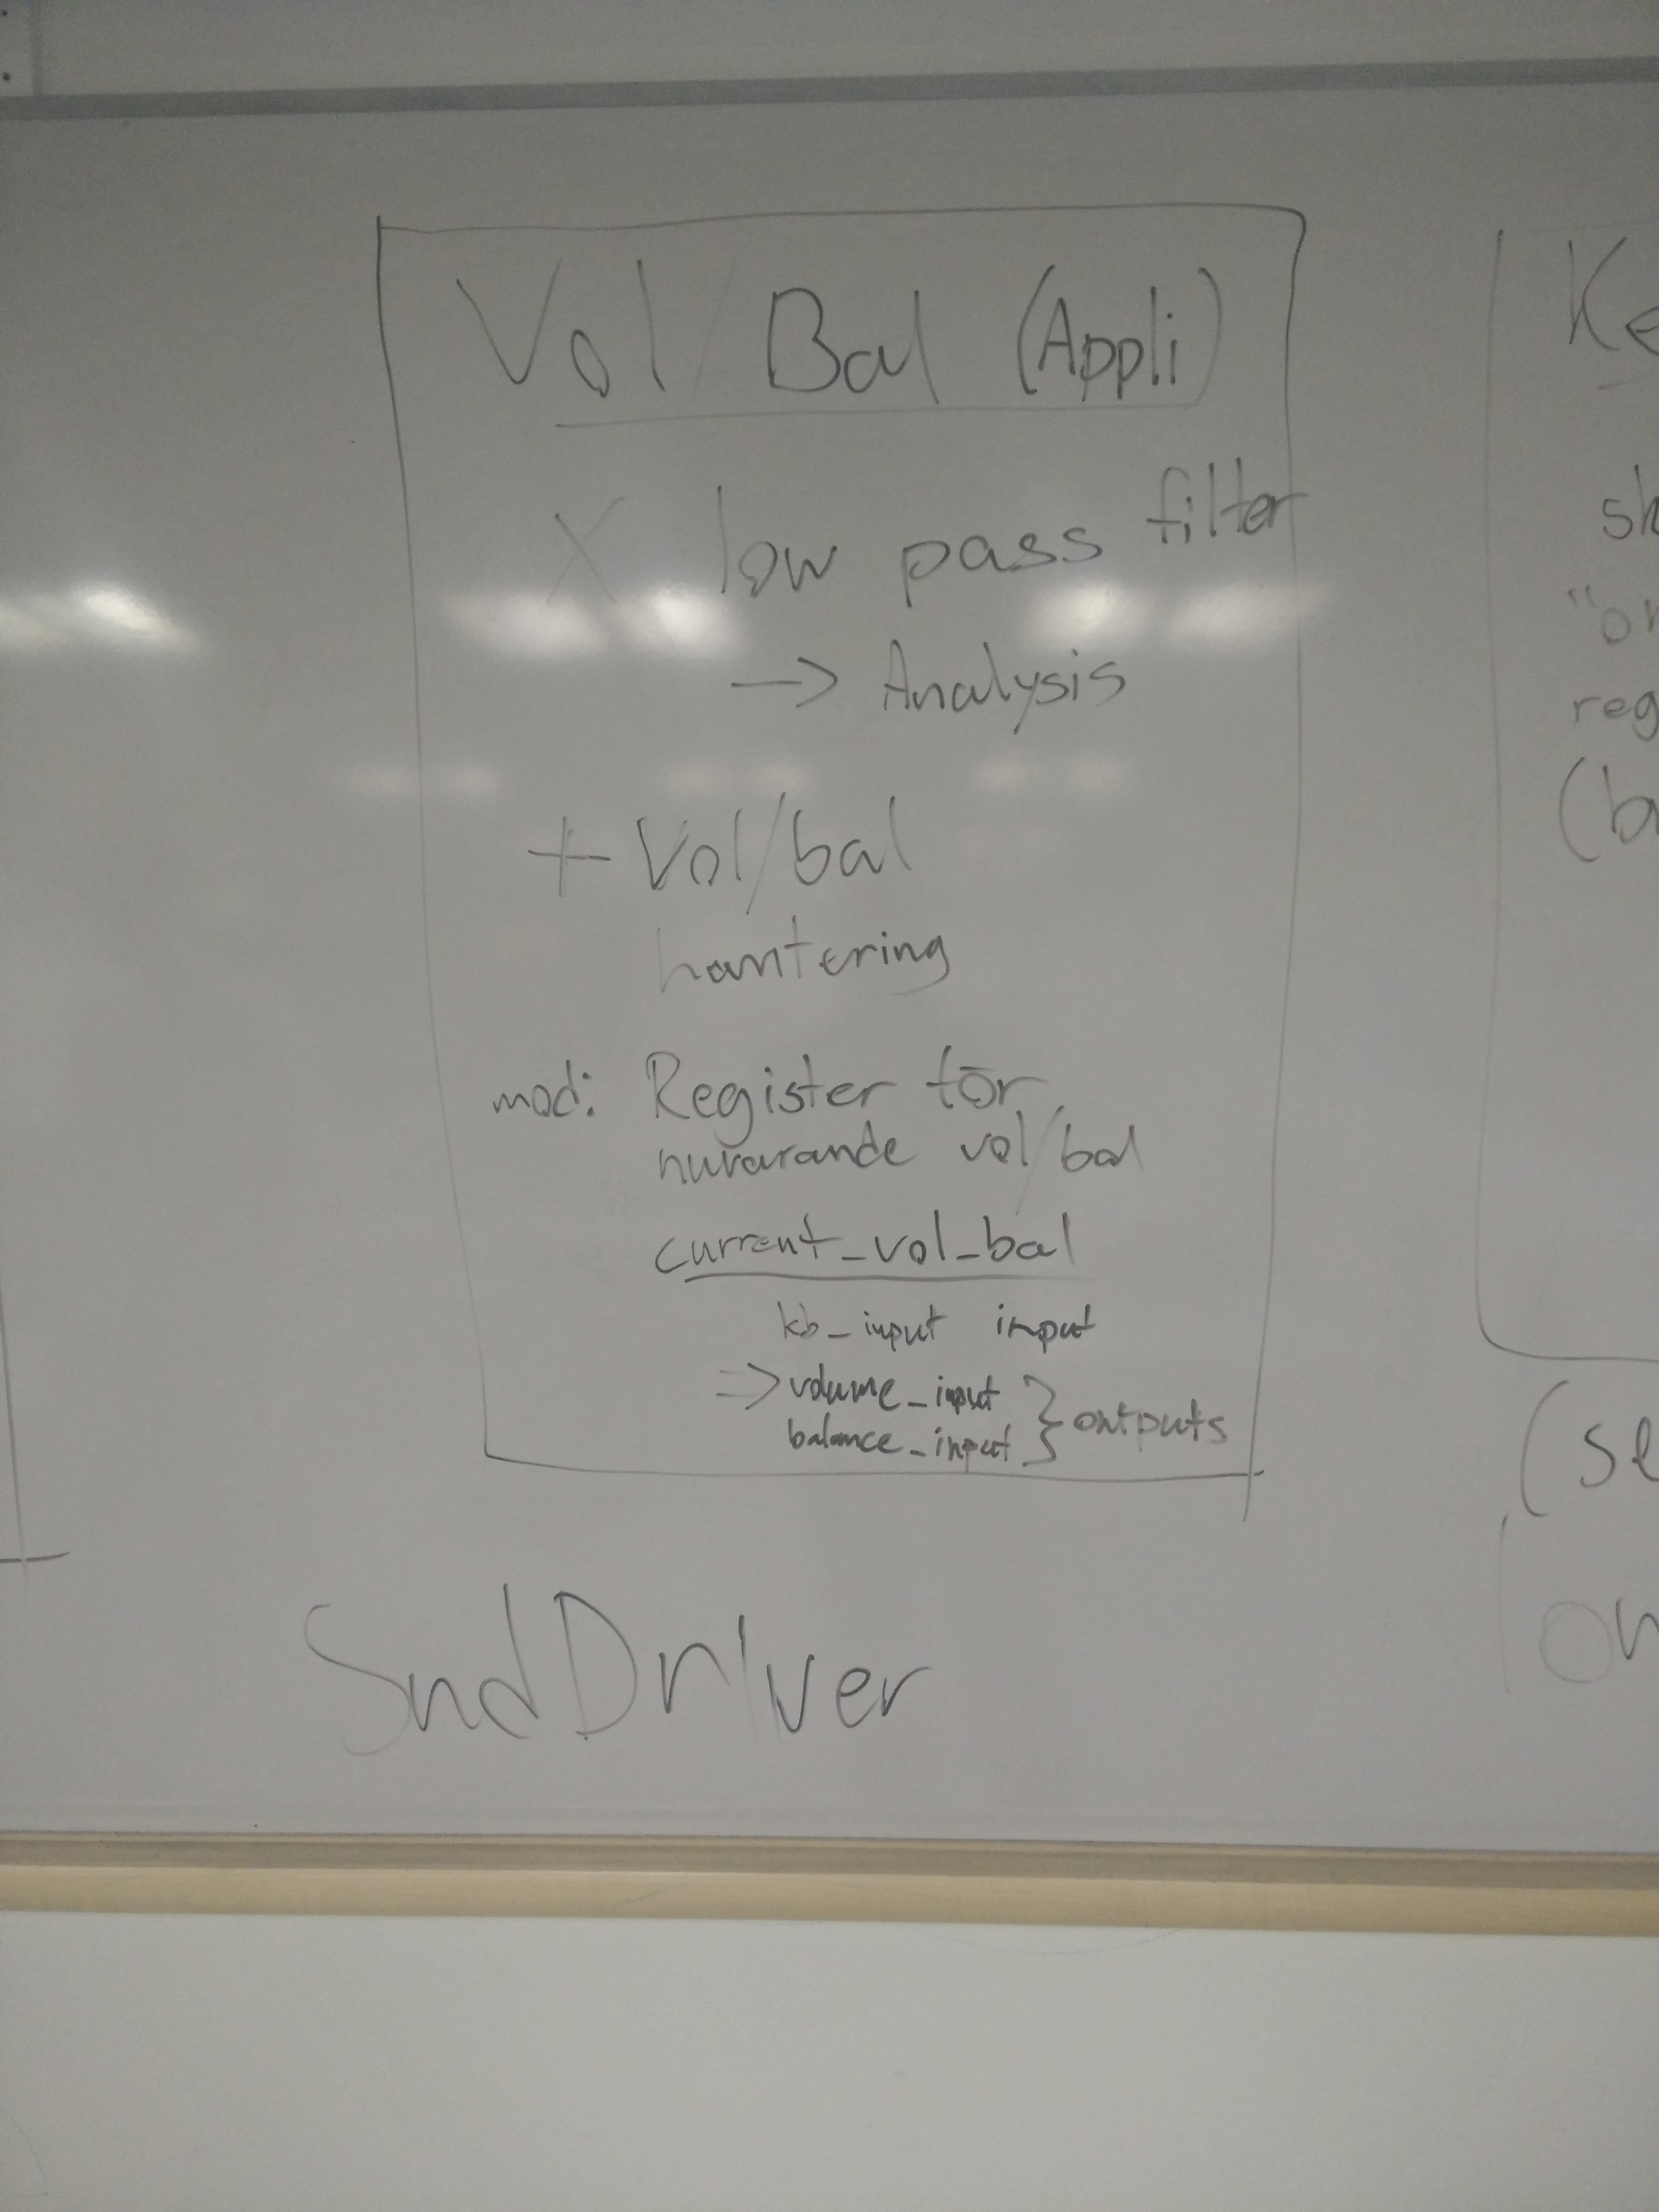 Vol/Bal (Appli)
X low pass filter
→ Analysis
+ Vol/bal
hantering
mod: Register för
nuvarande vol/bal
current_vol_bal
kb_input input
=> volume_input
balance_input } outputs
SndDriver
Ke
sk
reg
(b
(se
on